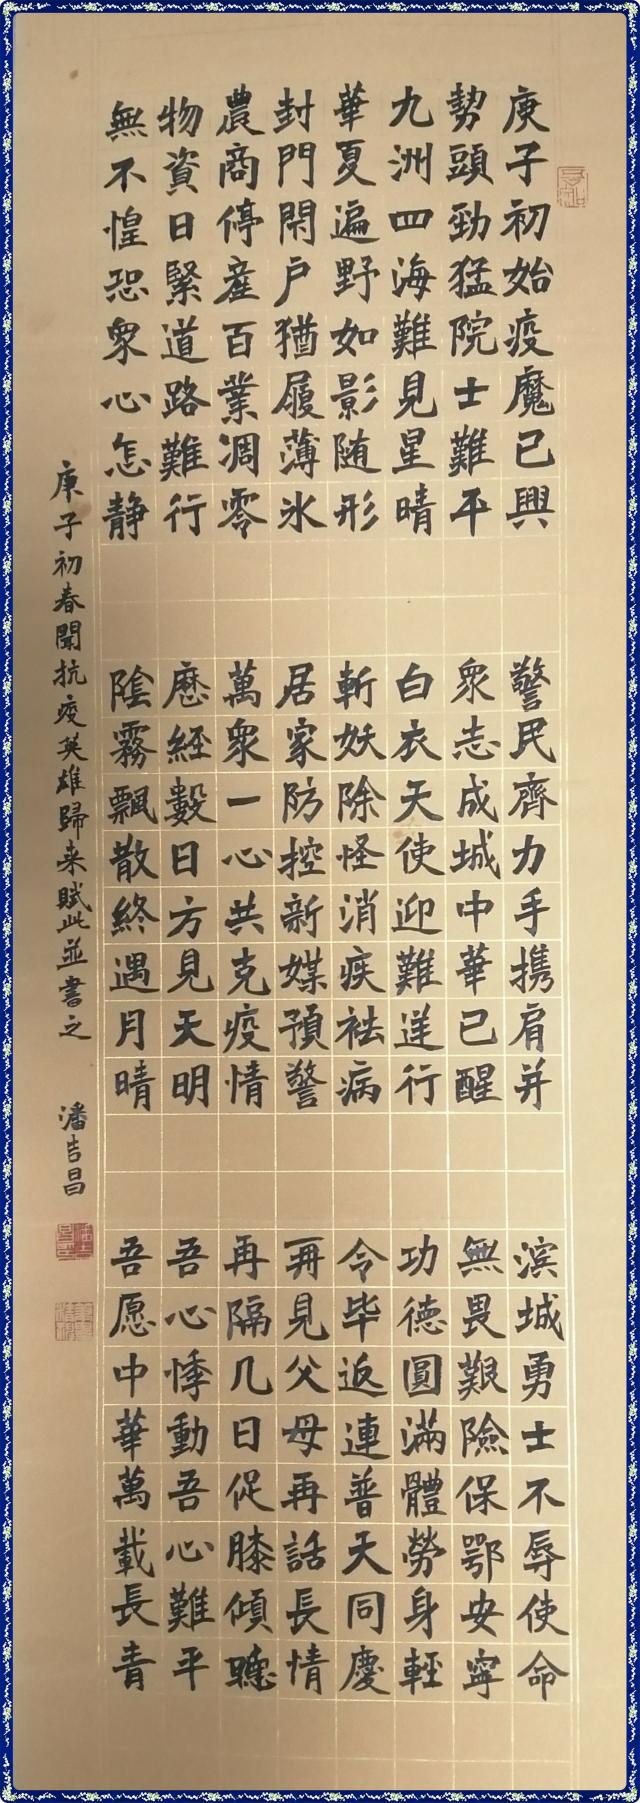 庚子初始疫魔已興
勢頭勁猛院士難平
九洲四海難見星晴
華夏遍野如影随形
封門閉户猶履薄氷
農商停產百業凋零
物資日緊道路難行
無不惶恐衆心怎静
警民齊力手携肩并
衆志成城中華已醒
白衣天使迎難逆行
斬妖除怪消疾祛病
居家防控新媒預警
萬衆一心共克疫情
歷經數日方見天明
陰霧飄散終遇月晴
滨城勇士不辱使命
無畏艱險保鄂安寧
功德圓滿體勞身輕
令毕返連普天同慶
再見父母再話長情
再隔几日促膝傾聽
吾心悸動吾心難平
吾愿中華萬載長青
庚子初春聞抗疫英雄歸来賦此並書之
潘吉昌